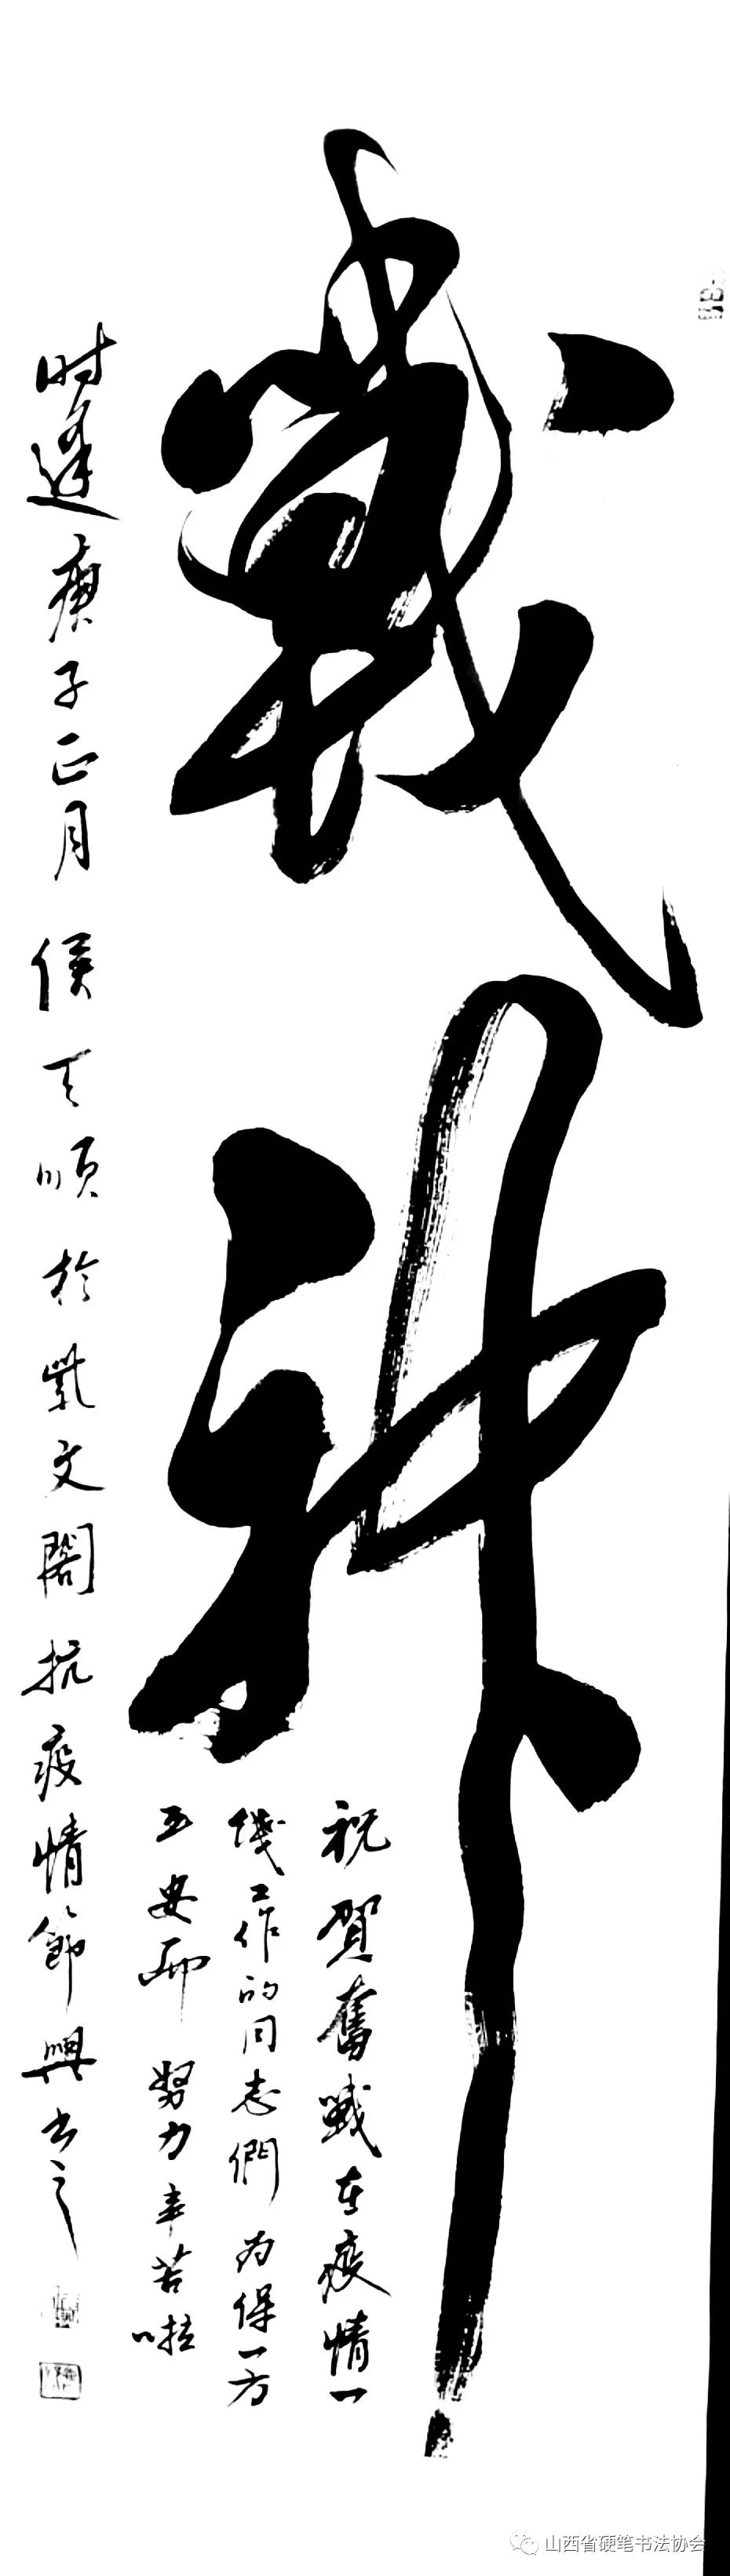 戰神
祝賀奮戰在疫情一
綫工作的同志們为保一方
平安而努力辛苦啦
时逢庚子正月侯天順於紫文閣抗疫情節興书之
山西省硬笔书法协会